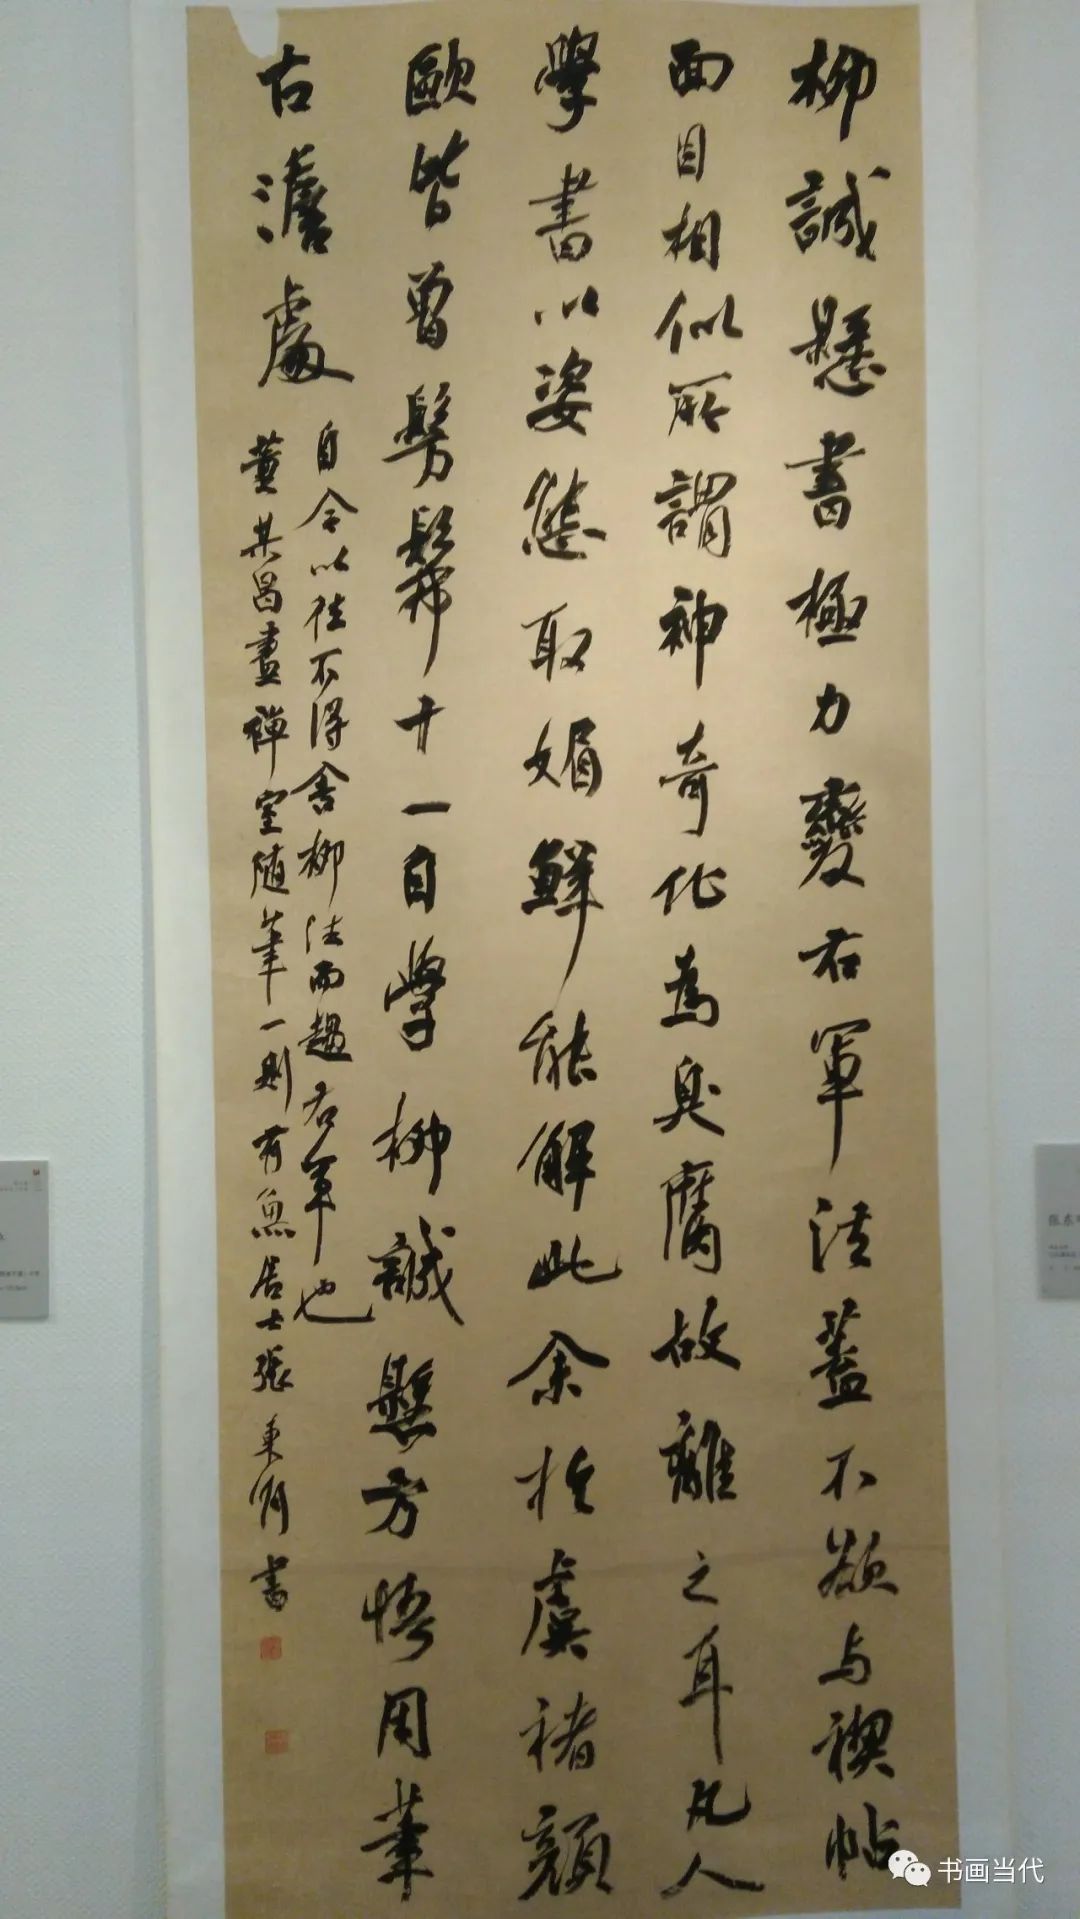 柳誠懸書極力變右軍法蓋不欲与禊帖
面目相似所謂神奇化為臭腐故離之耳凡人
學書以姿態取媚鮮能解此余於虞褚顏
歐皆曾髣髴十一自學柳誠懸方悟用筆
古澹處
自今以往不得舍柳法而趨右軍也
董其昌畫禪室随筆一則有魚居士張東明書
张东
书画当代